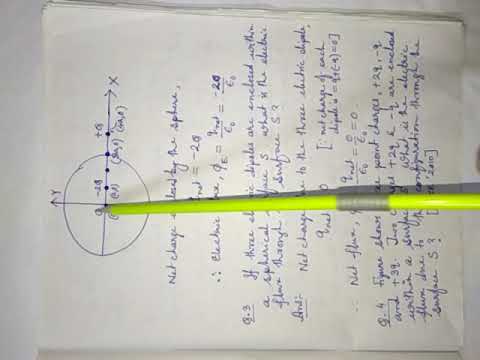 Y
X
-2Q
+Q
Net charge enclosed by the sphere,
= -2Q
∴ Electric flux, φE = qnet/ε0 = -2Q/ε0
Q.3 If three electric dipoles are enclosed within
a spherical surface S what is the electric
flux through surface S?
Ans: Net charge due to the three electric dipole,
qnet = 0 [∵ net charge of each
dipole is = q+(-q)=0]
∴ Net flux, = qnet/ε0 = 0/ε0 = 0
Q.4 Figure shows point charges, +2q, -q
and +3q. Two charges +2q & -q are enclosed
within a surface S. What is the electric
flux due to the configuration through the
surface S? 2010]